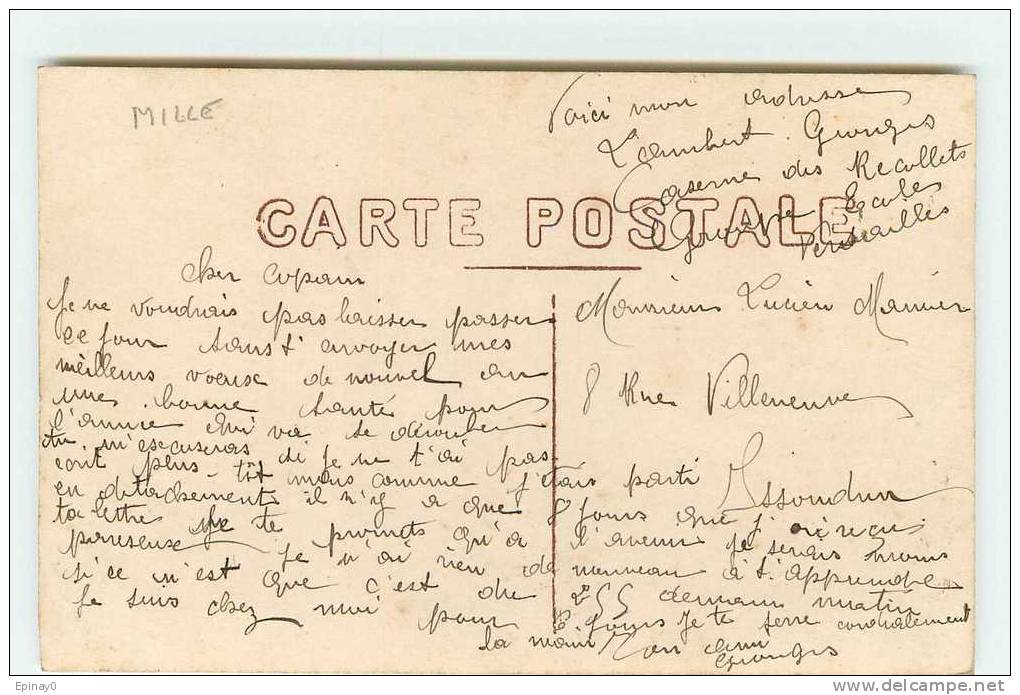 MILLE
Voici mon adresse
Lambert Georges
Caserne des Recollets
Groupe Ecoles
Versailles
CARTE POSTALE
cher copain
Monsieur Lucien Manier
8 Rue Villeneuve
Issoudun
Je ne voudrais pas laisser passer
ce jour sans t'anvoyer mes
meilleurs voeux de nouvel an
une bonne santé pour
l'année qui va se
tu m'escuseras si je ne t'ai pas
ecrit plus tôt mais comme j'étais parti
en detachement il n'y a que 8 jours que j'ai reçu
ta lettre Je te promets qu'a l'avenir je serais moins
pareseux Je n'ai rien de nouveau à t'apprendre
si ce n'est que c'est du 255 demain matin
je suis chez moi pour 6 jours Je te serre cordialement
la main Ton ami
Georges
Epinay0
www.delcampe.net